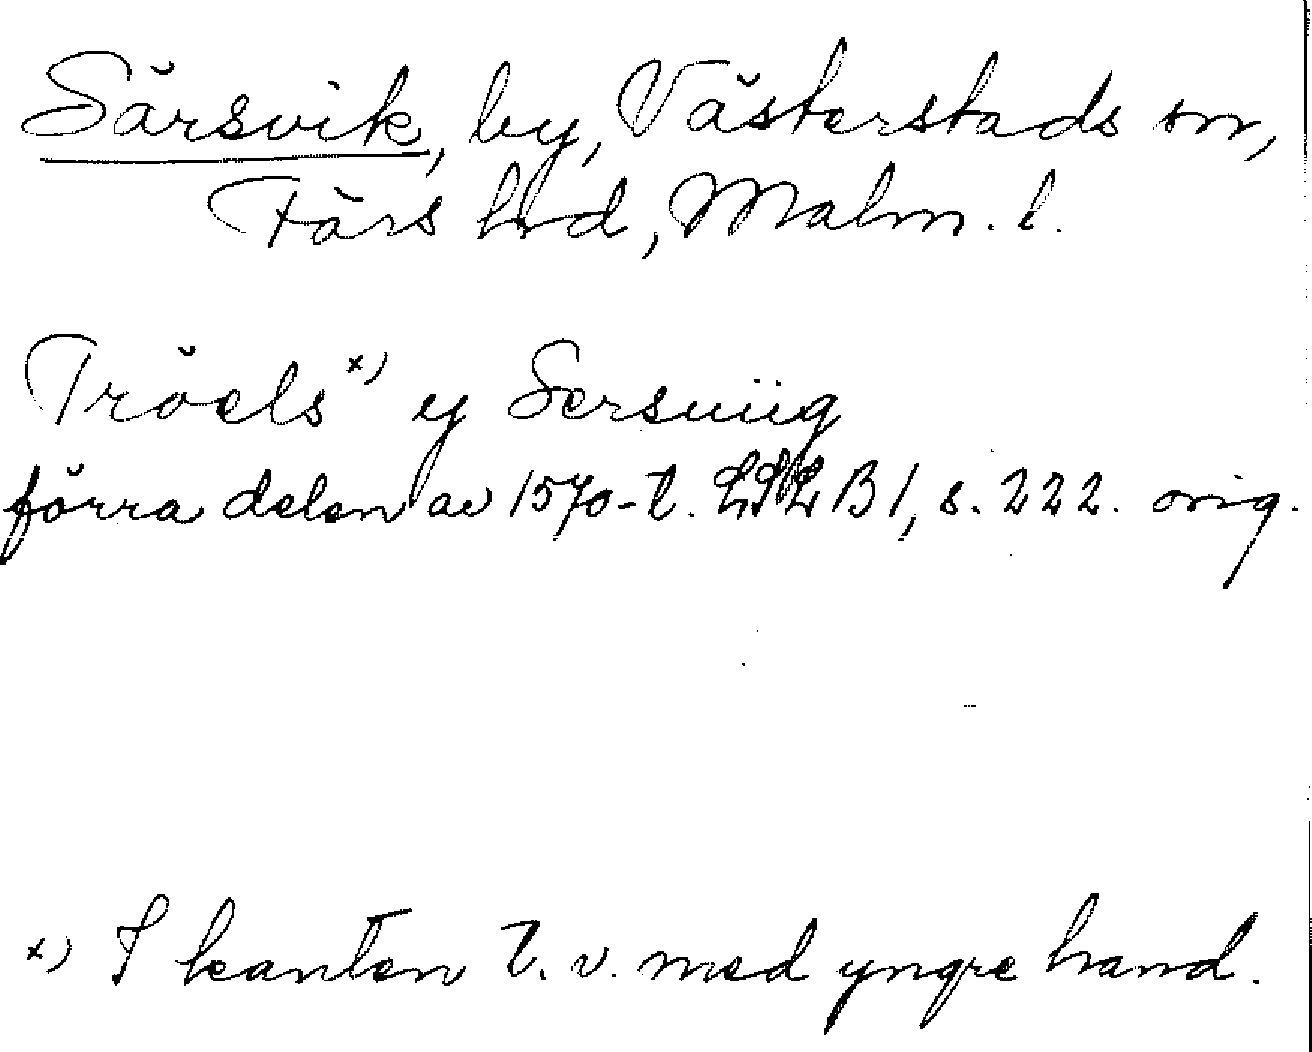 Särsvik, by, Västerstads sn,
Färs hd, Malm. l.
Tröels x) y Sersuiig
förra delen av 1570-t. LSL B1, s. 222. orig.
x) I kanten t. v. med yngre hand.